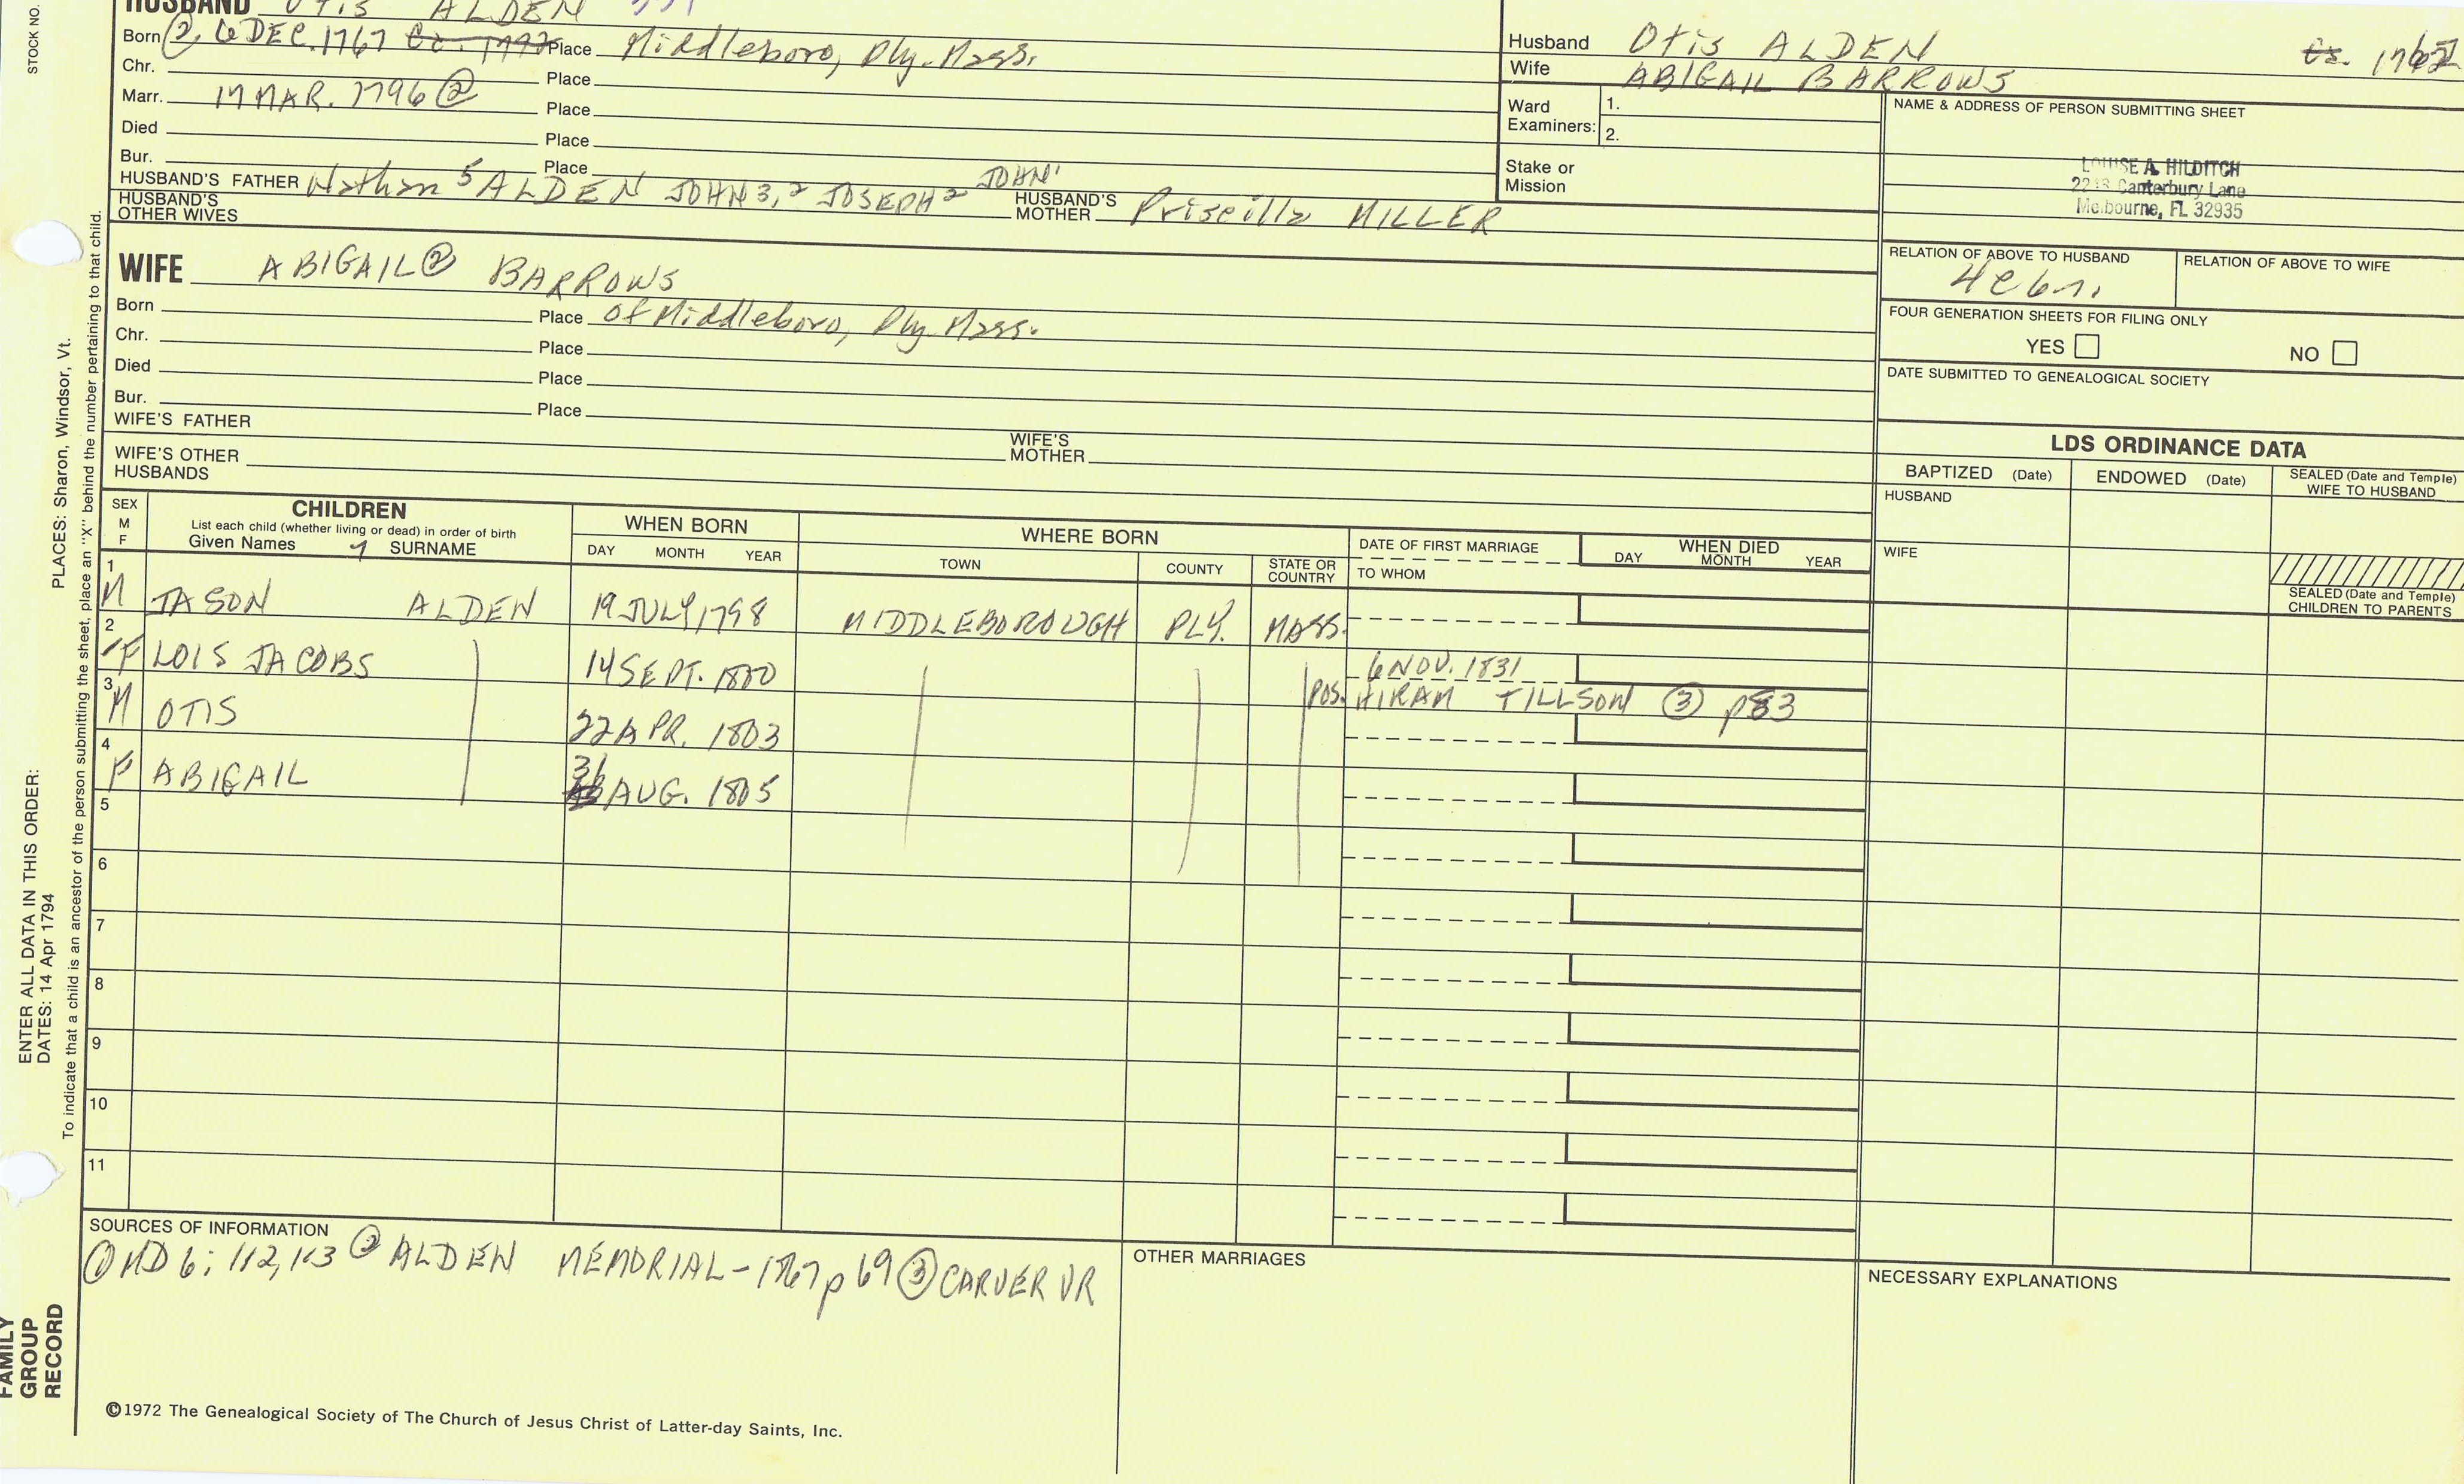 STOCK NO.
HUSBAND OTIS ALDEN
Born ②, 6 DEC. 1767 Place Middleboro, Ply. Mass.
Chr. Place
Marr. 17 MAR. 1796 ② Place
Died Place
Bur. Place
HUSBAND'S FATHER Nathan 5 ALDEN JOHN 3, 2 JOSEPH 2 JOHN 1
HUSBAND'S MOTHER Priscilla MILLER
HUSBAND'S OTHER WIVES
Husband Otis ALDEN
Wife ABIGAIL BARROWS
Ward Examiners: 1.
2.
Stake or Mission
NAME & ADDRESS OF PERSON SUBMITTING SHEET
LOUISE A. HILDITCH
Canterbury Lane
Melbourne, FL 32935
RELATION OF ABOVE TO HUSBAND
RELATION OF ABOVE TO WIFE
FOUR GENERATION SHEETS FOR FILING ONLY
YES NO
DATE SUBMITTED TO GENEALOGICAL SOCIETY
WIFE ABIGAIL ② BARROWS
Born Place of Middleboro, Ply. Mass.
Chr. Place
Died Place
Bur. Place
WIFE'S FATHER
WIFE'S MOTHER
WIFE'S OTHER HUSBANDS
LDS ORDINANCE DATA
BAPTIZED (Date) ENDOWED (Date) SEALED (Date and Temple) WIFE TO HUSBAND
HUSBAND
WIFE
SEALED (Date and Temple) CHILDREN TO PARENTS
SEX M F
CHILDREN
List each child (whether living or dead) in order of birth
Given Names SURNAME
WHEN BORN
DAY MONTH YEAR
WHERE BORN
TOWN COUNTY STATE OR COUNTRY
DATE OF FIRST MARRIAGE
TO WHOM
WHEN DIED
DAY MONTH YEAR
1 M JASON ALDEN 19 JULY 1798 MIDDLEBOROUGH PLY. MASS.
2 F LOIS JACOBS 14 SEPT. 1800 6 NOV. 1831
pos. HIRAM TILLSON ③ p83
3 M OTIS 22 APR. 1803
4 F ABIGAIL 31 AUG. 1805
5
6
7
8
9
10
11
SOURCES OF INFORMATION
① MD 6: 112, 113 ② ALDEN MEMORIAL - 1867 p 69 ③ CARVER VR
OTHER MARRIAGES
NECESSARY EXPLANATIONS
©1972 The Genealogical Society of The Church of Jesus Christ of Latter-day Saints, Inc.
FAMILY GROUP RECORD
ENTER ALL DATA IN THIS ORDER:
DATES: 14 Apr 1794
PLACES: Sharon, Windsor, Vt.
To indicate that a child is an ancestor of the person submitting the sheet, place an "X" behind the number pertaining to that child.